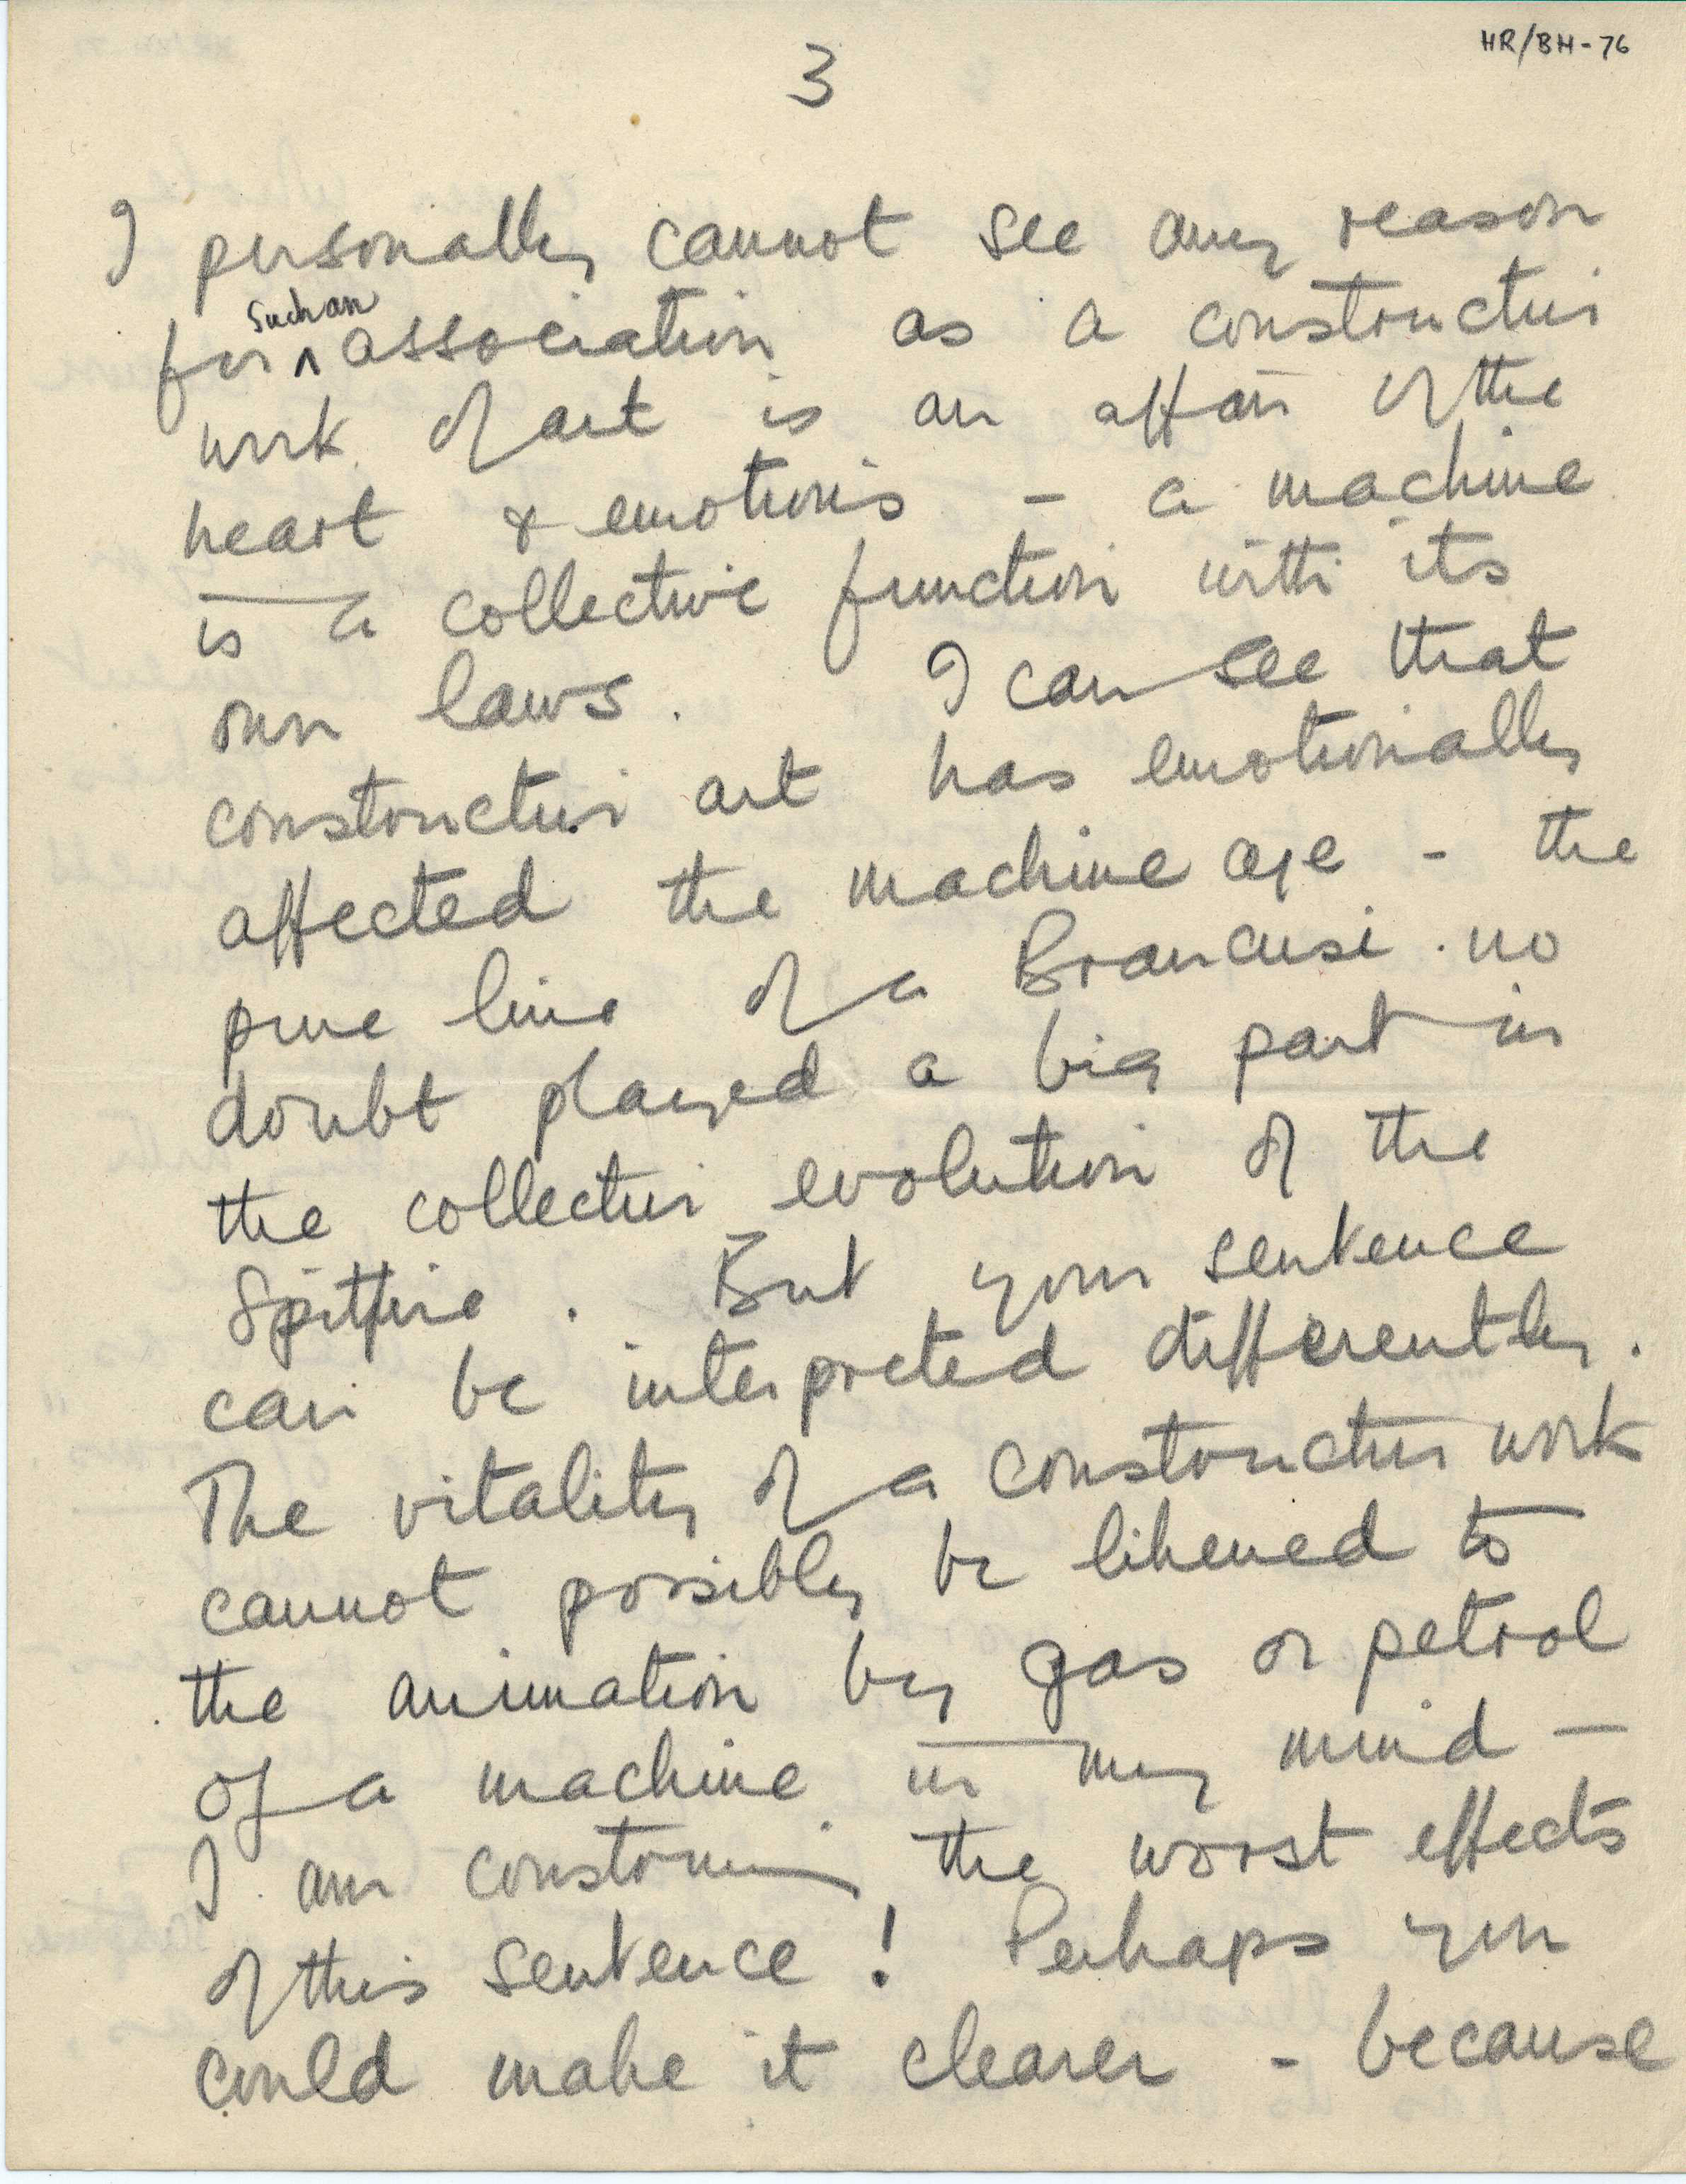 HR/BH-76
3
I personally cannot see any reason
for such an association as a constructive
work of art is an affair of the
heart & emotions - a machine
is a collective function with its
own laws. I can see that
constructive art has emotionally
affected the machine age - the
pure line of a Brancusi no
doubt played a big part in
the collective evolution of the
Spitfire. But your sentence
can be interpreted differently.
The vitality of a constructive work
cannot possibly be likened to
the animation by gas or petrol
of a machine in my mind -
I am construing the worst effects
of this sentence! Perhaps you
could make it clearer - because